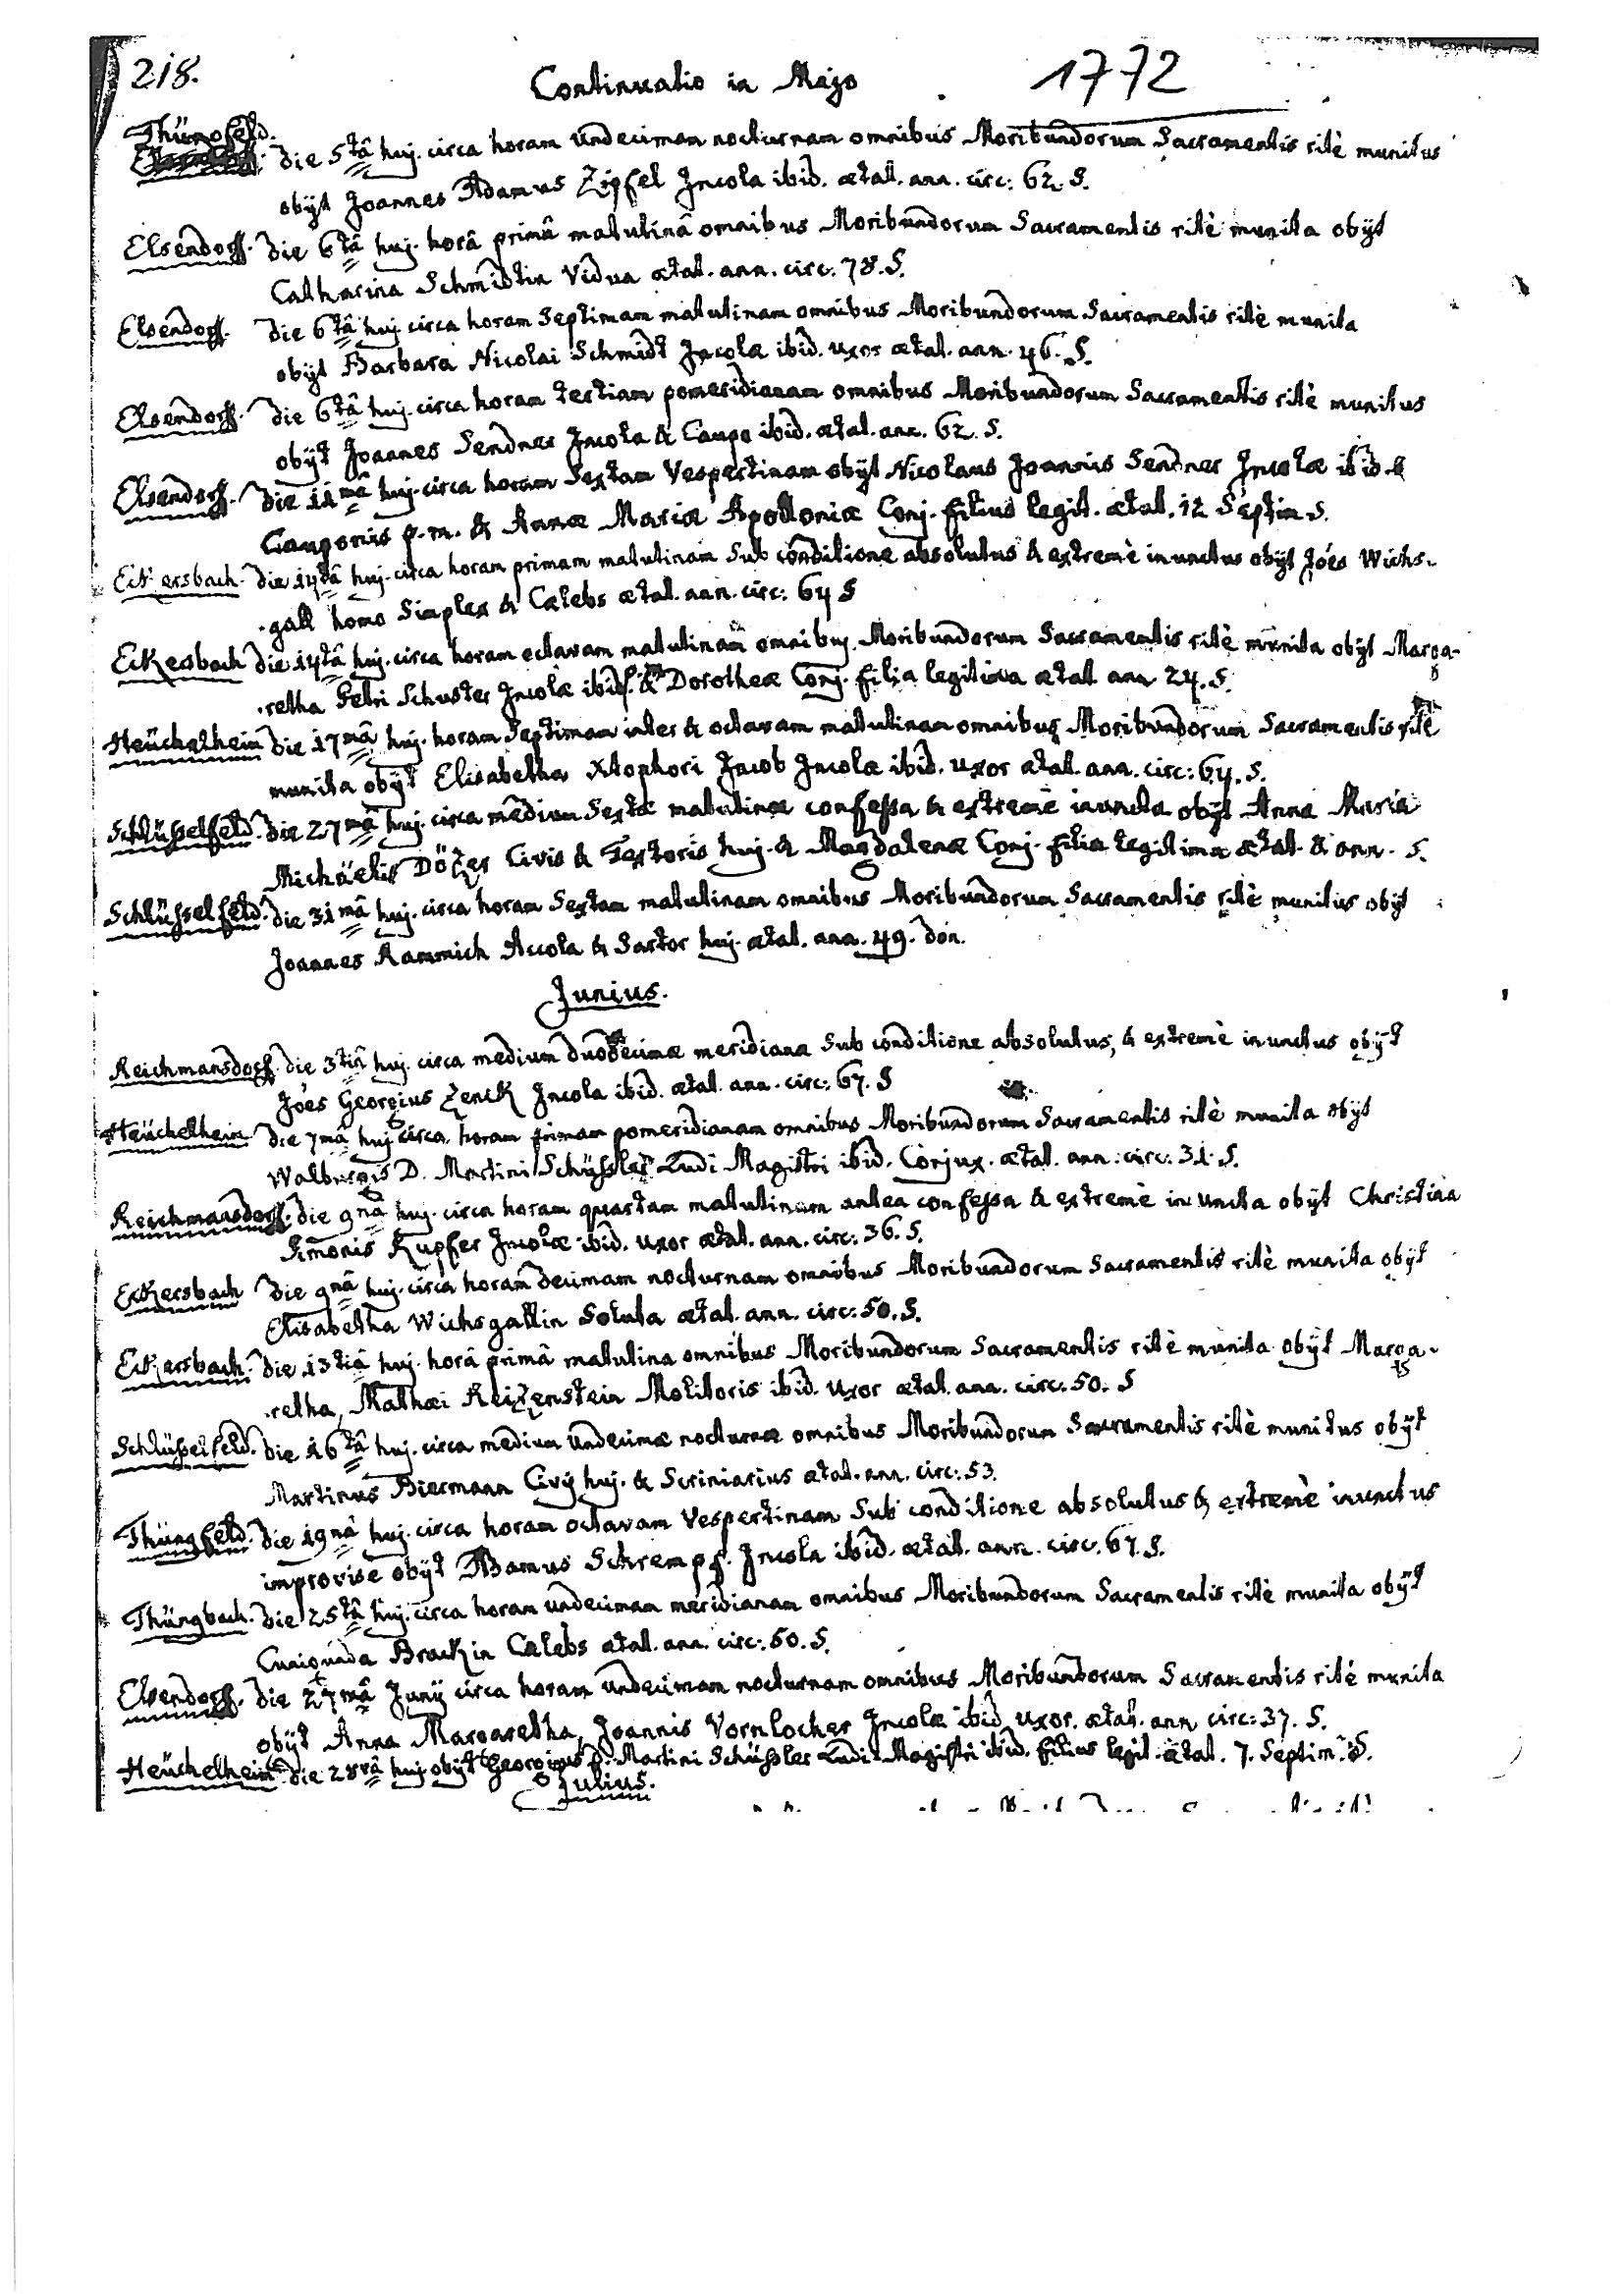 218.
Continuatio in Majo
1772
Thüngfeld. die 5tâ huj. circa horam undecimam nocturnam omnibus Moribundorum Sacramentis ritè munitus
obijt Joannes Adamus Zipfel Incola ibid. ætat. ann. circ: 62. S.
Elsendorff. die 6tâ huj. horâ primâ matutinâ omnibus Moribundorum Sacramentis ritè munita obijt
Catharina Schmidtin Vidua ætat. ann. circ: 78. S.
Elsendorff. die 6tâ huj. circa horam Septimam matutinam omnibus Moribundorum Sacramentis ritè munita
obijt Barbara Nicolai Schmidt Incolæ ibid. uxor ætat. ann. 46. S.
Elsendorff. die 6tâ huj. circa horam tertiam pomeridianam omnibus Moribundorum Sacramentis ritè munitus
obijt Joannes Sendner Incola & Caupo ibid. ætat. ann. 62. S.
Elsendorff. die 11mâ huj. circa horam Sextam Vespertinam obijt Nicolaus Joannis Sendner Incolæ ibid. &
Cauponis p. m. & Annæ Mariæ Apolloniæ Conj. filius legit. ætat. 12 Septim S.
Eckersbach. die 14tâ huj. circa horam primam matutinam Sub conditione absolutus & extremè inunctus obijt Jóes Wichs-
-gall homo Simplex & Cælebs ætat. ann. circ: 64 S
Eckersbach die 14tâ huj. circa horam octavam matutinam omnibus Moribundorum Sacramentis ritè munita obijt Marga-
-retha Petri Schuster Incolæ ibid. & Dorotheæ Conj. filia legitima ætat ann 24. S.
Heüchelheim die 17mâ huj. horam Septimam inter & octavam matutinam omnibus Moribundorum Sacramentis ritè
munita obijt Elisabetha Xtophori Jacob Incolæ ibid. uxor ætat. ann. circ: 64. S.
Schlüsselfeld. die 27mâ huj. circa medium Sextæ matutinæ confessa & extremè inuncta obijt Anna Maria
Michäelis Döžer Civis & Textoris huj. & Magdalenæ Conj. filia legitima ætat. 8 ann. S.
Schlüsselfeld. die 31mâ huj. circa horam Sextam matutinam omnibus Moribundorum Sacramentis ritè munitus obijt
Joannes Rammich Accola & Sartor huj. ætat. ann. 49. don.
Junius.
Reichmansdorff. die 3tiâ huj. circa medium duodecimæ meridianæ Sub conditione absolutus, & extremè inunctus obijt
Jóes Georgius Zenck Incola ibid. ætat. ann. circ: 67. S
Heüchelheim die 7mâ huj circa horam primam pomeridianam omnibus Moribundorum Sacramentis ritè munita obijt
Walburgis D. Martini Schüssler Ludi Magistri ibid. Conjux. ætat. ann. circ: 31. S.
Reichmansdorff. die 9nâ huj. circa horam quartam matutinam antea confessa & extremè inuncta obijt Christina
Simonis Kupfer Incolæ ibid. uxor ætat. ann. circ: 36. S.
Eckersbach die 9nâ huj. circa horam decimam nocturnam omnibus Moribundorum Sacramentis ritè munita obijt
Elisabetha Wichsgallin Soluta ætat. ann. circ: 50. S.
Eckersbach. die 13tiâ huj. horâ primâ matutina omnibus Moribundorum Sacramentis ritè munita obijt Marga-
-retha, Mathæi Reizenstein Molitoris ibid. uxor ætat. ann. circ: 50. S
Schlüsselfeld. die 16tâ huj. circa medium undecimæ nocturnæ omnibus Moribundorum Sacramentis ritè munitus obijt
Martinus Biermann Civis huj. & Scriniarius ætat. ann. circ: 53.
Thüngfeld. die 19nâ huj. circa horam octavam Vespertinam Sub conditione absolutus & extremè inunctus
improvise obijt Adamus Schrempf. Incola ibid. ætat. ann. circ. 67. S.
Thüngbach. die 25tâ huj. circa horam undecimam meridianam omnibus Moribundorum Sacramentis ritè munita obijt
Cunigunda Brackin Cælebs ætat. ann. circ: 50. S.
Elsendorff. die 27mâ Junij circa horam undecimam nocturnam omnibus Moribundorum Sacramentis ritè munita
obijt Anna Margaretha, Joannis Vornlocher Incolæ ibid uxor. ætat. ann circ: 37. S.
Heüchelheim. die 28vâ huj obijt Georgius D. Martini Schüssler Ludi Magistri ibid. filius legit. ætat. 7. Septim. S.
Julius.